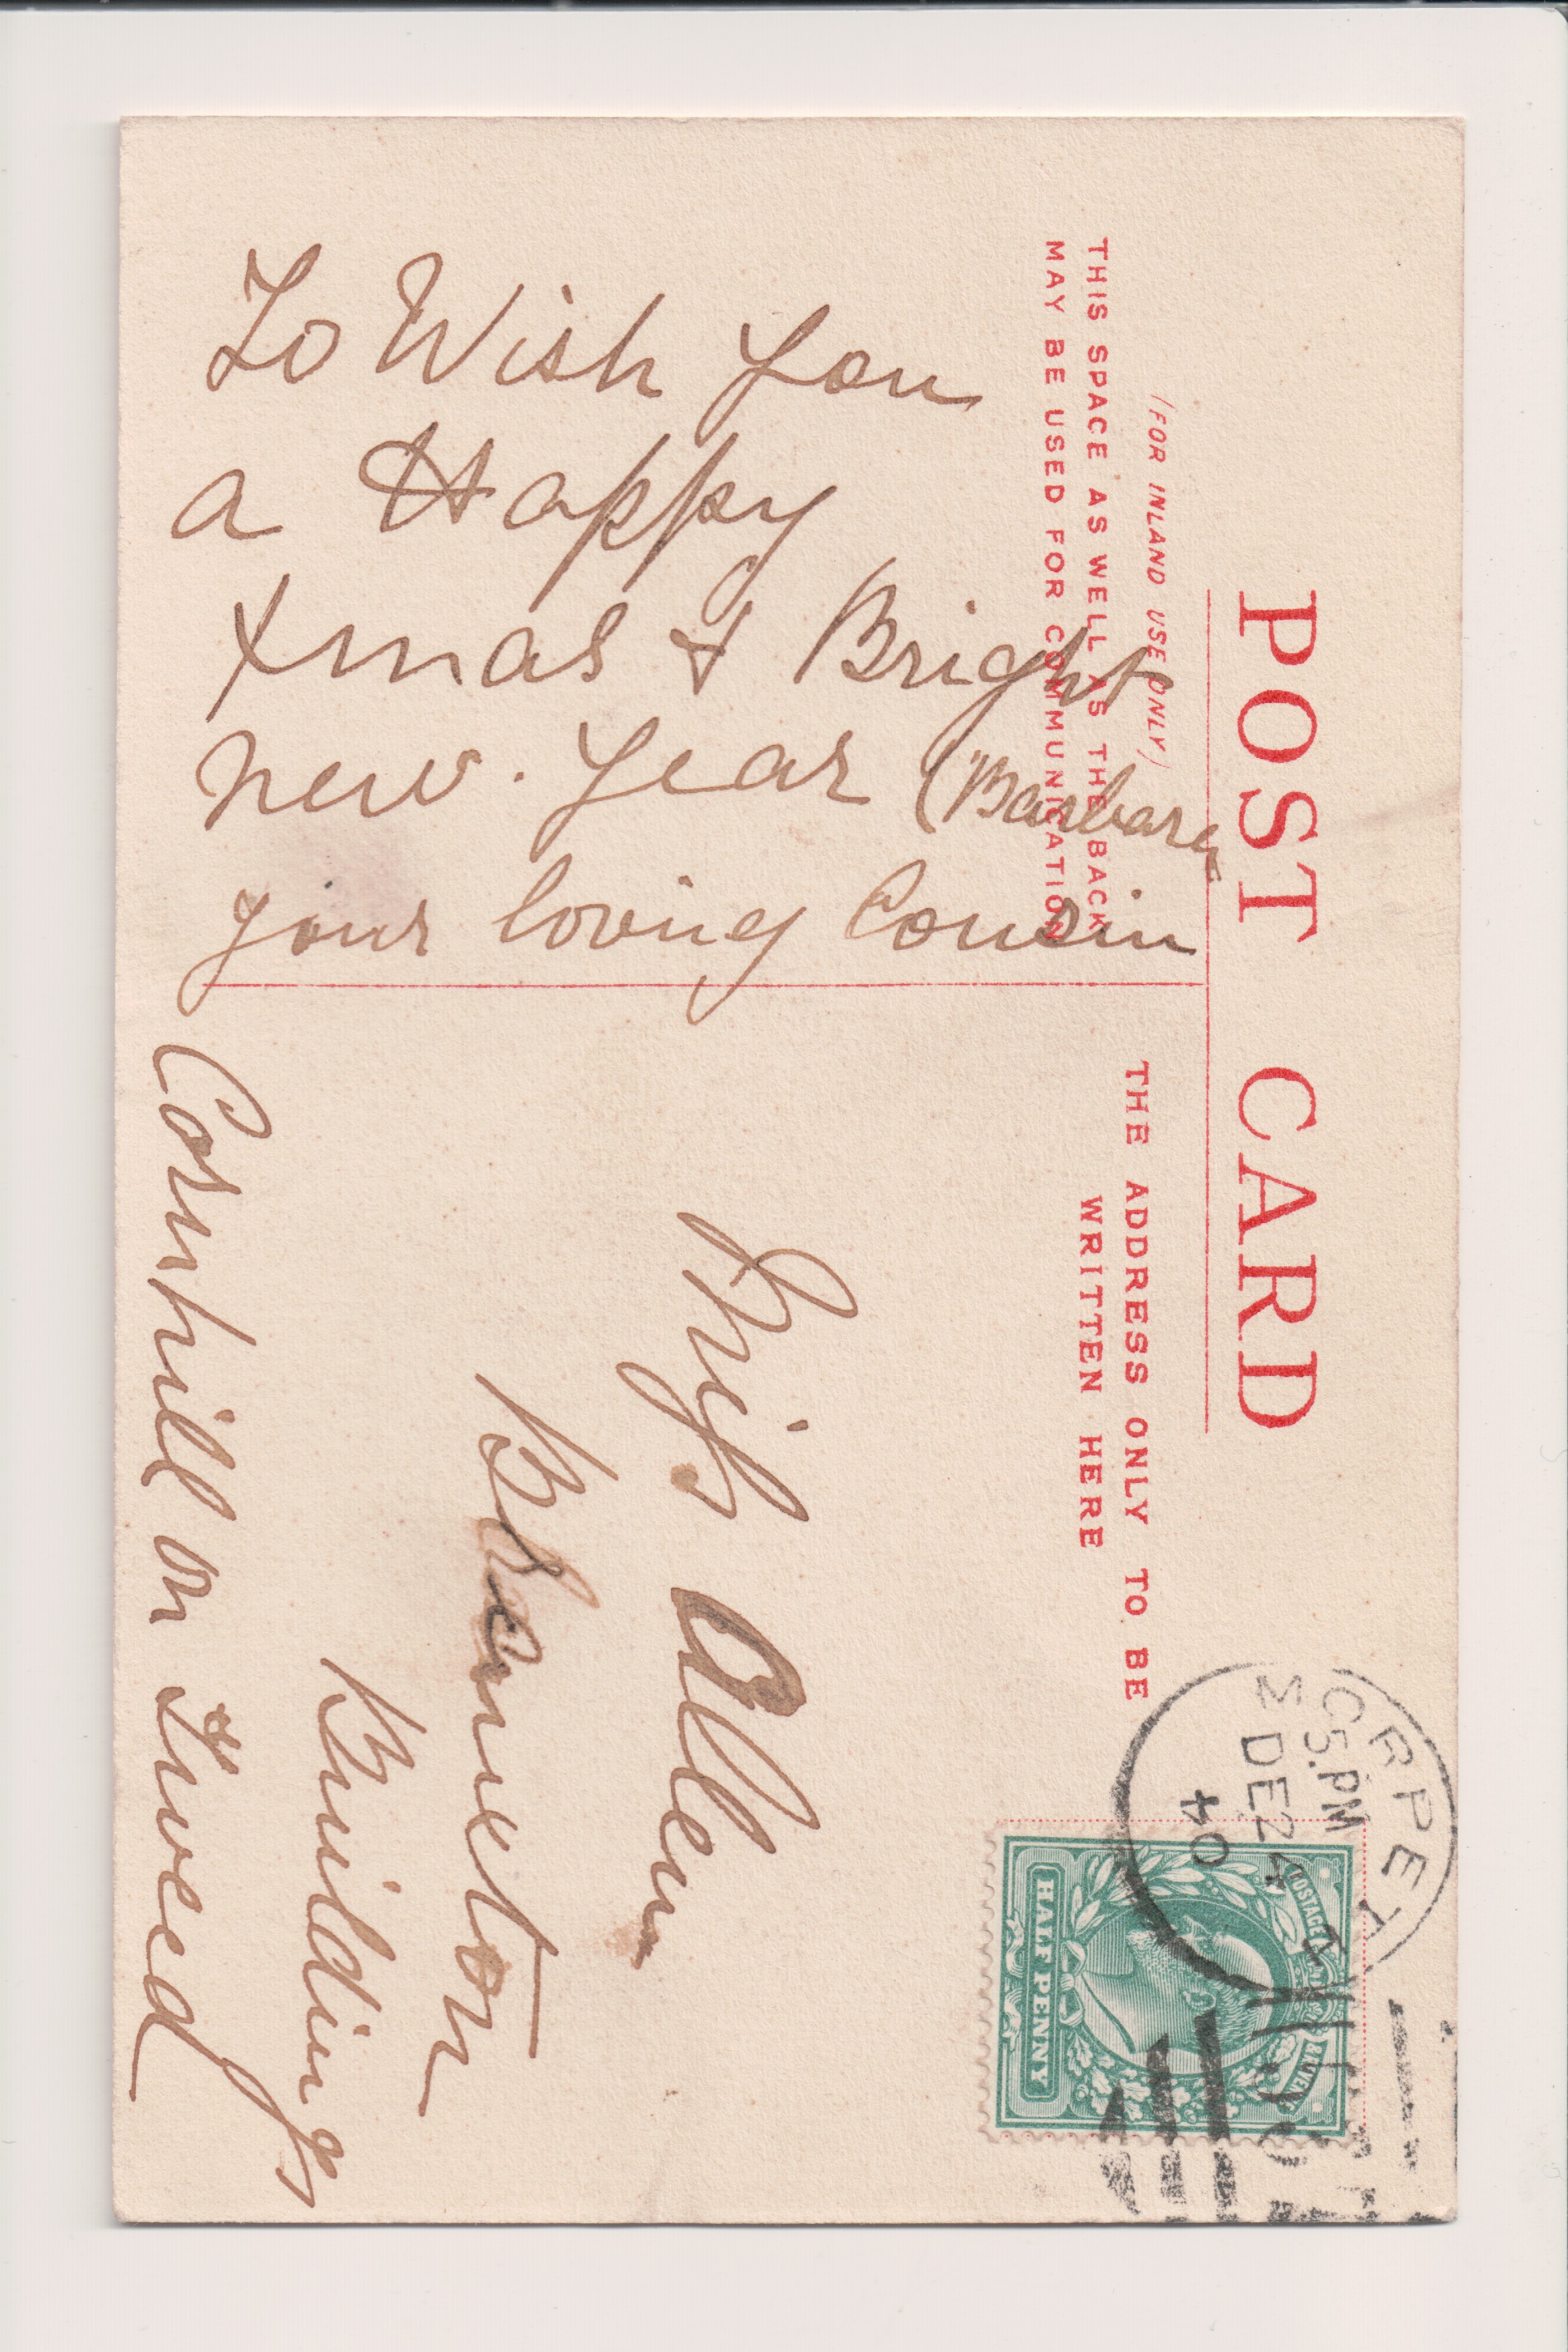 POST CARD
(FOR INLAND USE ONLY)
THIS SPACE AS WELL AS THE BACK
MAY BE USED FOR COMMUNICATION
THE ADDRESS ONLY TO BE
WRITTEN HERE
To Wish you
a Happy
Xmas & Bright
new. Year
(Barbara
your loving Cousin
Miss Allen
Branxton
Buildings
Cornhill on Tweed
MORPETH
5.PM
DE 24
04
POSTAGE
HALF PENNY